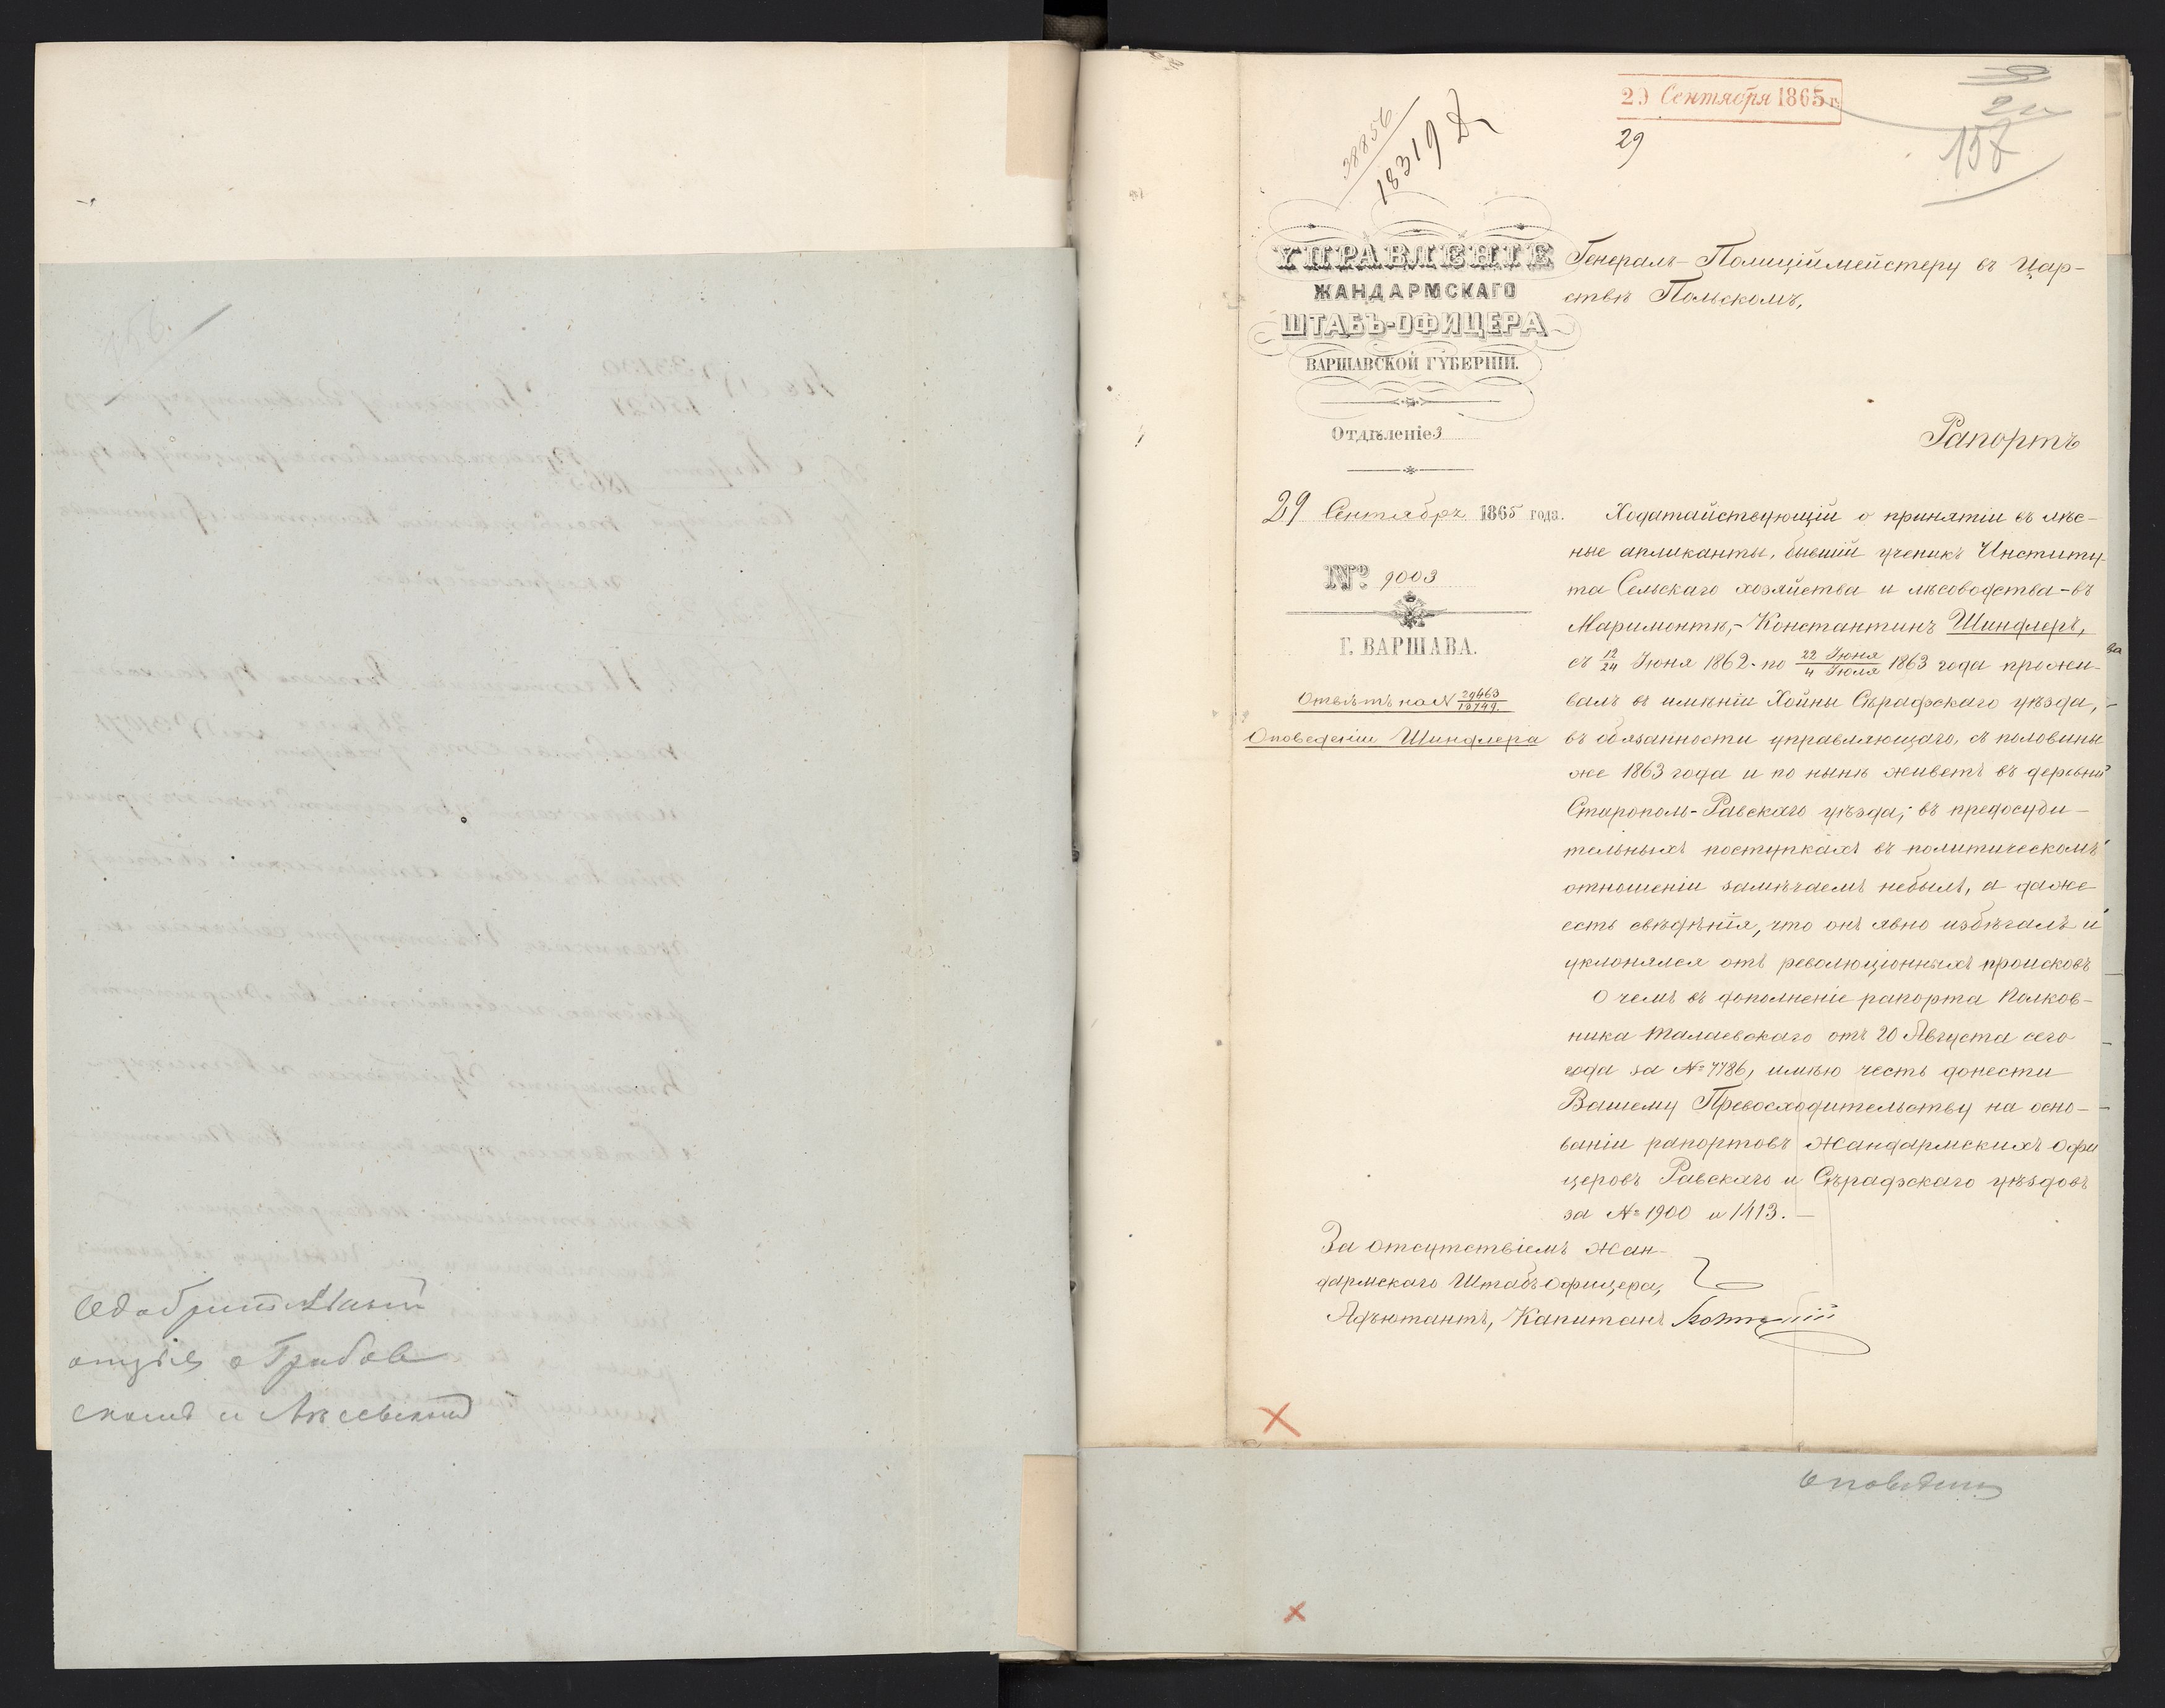 Одобрительный
отзывъ о Грабов
скомъ и
29 Сентября 1865 г.
29
38856
18319
157
УПРАВЛЕНІЕ
ЖАНДАРМСКАГО
ШТАБЪ-ОФИЦЕРА
ВАРШАВСКОЙ ГУБЕРНІИ.
Отдѣленіе 3
29 Сентября 1865 года.
№ 9003
Г. ВАРШАВА.
Отвѣтъ на №
О поведеніи Шиндлера
Генералъ-Полиціймейстеру въ Цар-
ствѣ Польскомъ,
Рапортъ
Ходатайствующій о принятіи въ лѣс-
ные апликанты, бывшій ученикъ Институ-
та Сельскаго хозяйства и лѣсоводства-въ
Маримонтѣ,- Константинъ Шиндлеръ,
съ 12/24 Іюня 1862. по 22 Іюня/4 Іюля 1863 года прожи-
валъ въ имѣніи Хойны Сѣрадзскаго уѣзда,
въ обязанности управляющаго, съ половины
же 1863 года и по нынѣ живетъ въ деревни
Старополь-Равскаго уѣзда; въ предосуди-
тельныхъ поступкахъ въ политическомъ
отношеніи замѣчаемъ небылъ, а даже
есть свѣдѣнія, что онъ явно избѣгалъ и
уклонялся отъ революціонныхъ происковъ
О чемъ въ дополненіе рапорта Полков-
ника Талаевскаго отъ 20 Августа сего
года за № 7786, имѣю честь донести
Вашему Превосходительству на осно-
ваніи рапортовъ Жандармскихъ Офи
церовъ Равскаго и Сѣрадзскаго уѣздовъ
за № 1900 и 1413.-
За отсутствіемъ Жан-
дармскаго Штабъ Офицера,
Адъютантъ, Капитанъ
О поведеніи